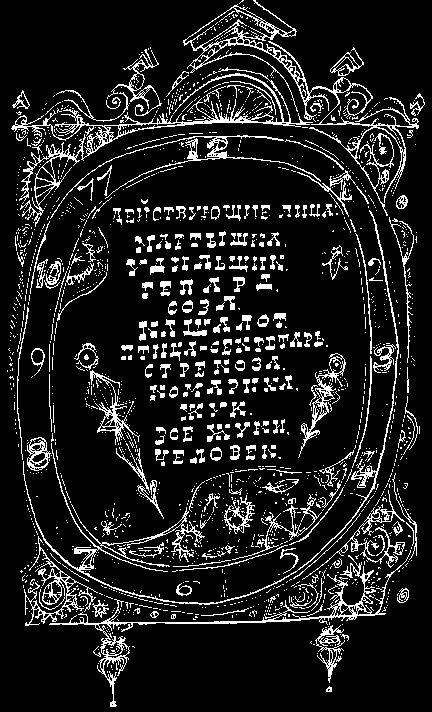 12
11
1
ДЕЙСТВУЮЩИЕ ЛИЦА:
МАРТЫШКА,
УДИЛЬЩИК,
10
2
ГЕПАРД,
СОВА,
КАШАЛОТ,
ПТИЦА-СЕКРЕТАРЬ,
9
3
СТРЕКОЗА,
КОМАРИХА,
ЖУК,
ВСЕ ЖУКИ,
8
4
ЧЕЛОВЕК.
7
6
5